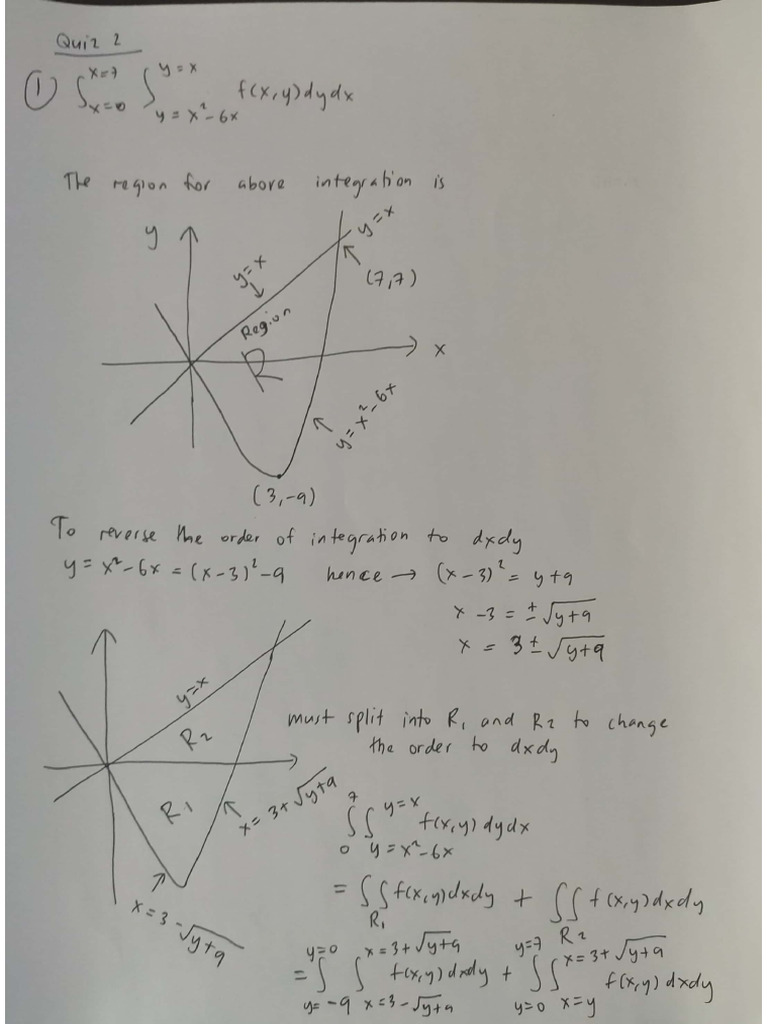 Quiz 2
① ∫_{x=0}^{x=7} ∫_{y=x²-6x}^{y=x} f(x,y)dydx
The region for above integration is
y
y=x
y=x
(7,7)
Region
R
x
y=x²-6x
(3,-9)
To reverse the order of integration to dxdy
y = x²-6x = (x-3)²-9 hence → (x-3)² = y+9
x-3 = ±√(y+9)
x = 3±√(y+9)
y=x
R2
must split into R₁ and R2 to change
the order to dxdy
R1
x=3+√(y+9)
x=3-√(y+9)
∫_{0}^{7} ∫_{y=x²-6x}^{y=x} f(x,y)dydx
= ∫∫_{R₁} f(x,y)dxdy + ∫∫_{R2} f(x,y)dxdy
= ∫_{y=-9}^{y=0} ∫_{x=3-√(y+9)}^{x=3+√(y+9)} f(x,y)dxdy + ∫_{y=0}^{y=7} ∫_{x=y}^{x=3+√(y+9)} f(x,y)dxdy